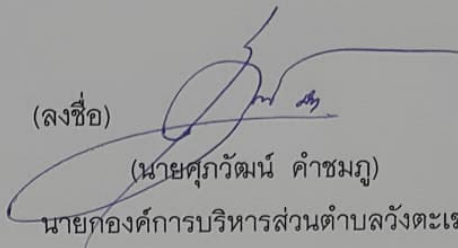 (ลงชื่อ)
(นายศุภวัฒน์ คำชมภู)
นายกองค์การบริหารส่วนตำบลวังตะเข